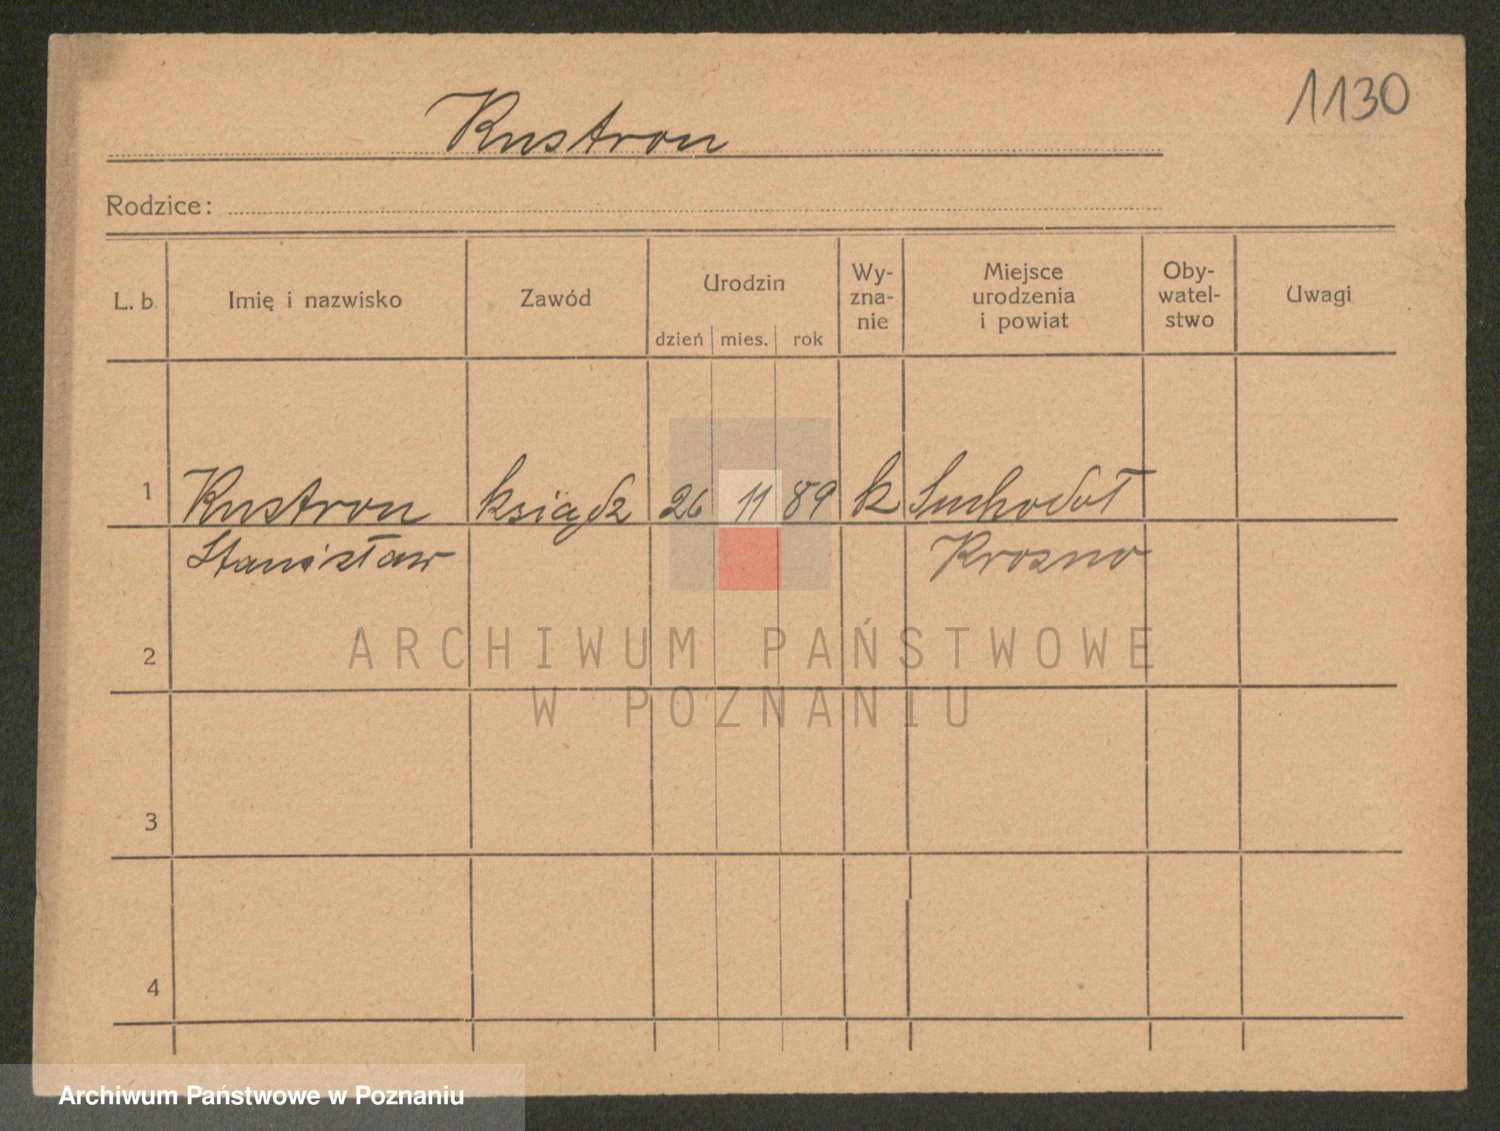 1130
Kustron
Rodzice:
L. b.
Imię i nazwisko
Zawód
Urodzin
dzień mies. rok
Wy-
zna-
nie
Miejsce
urodzenia
i powiat
Oby-
watel-
stwo
Uwagi
1 Kustron ksiądz 26 11 89 k Suchodoł
Stanisław Krosno
2
ARCHIWUM PAŃSTWOWE
W POZNANIU
3
4
Archiwum Państwowe w Poznaniu